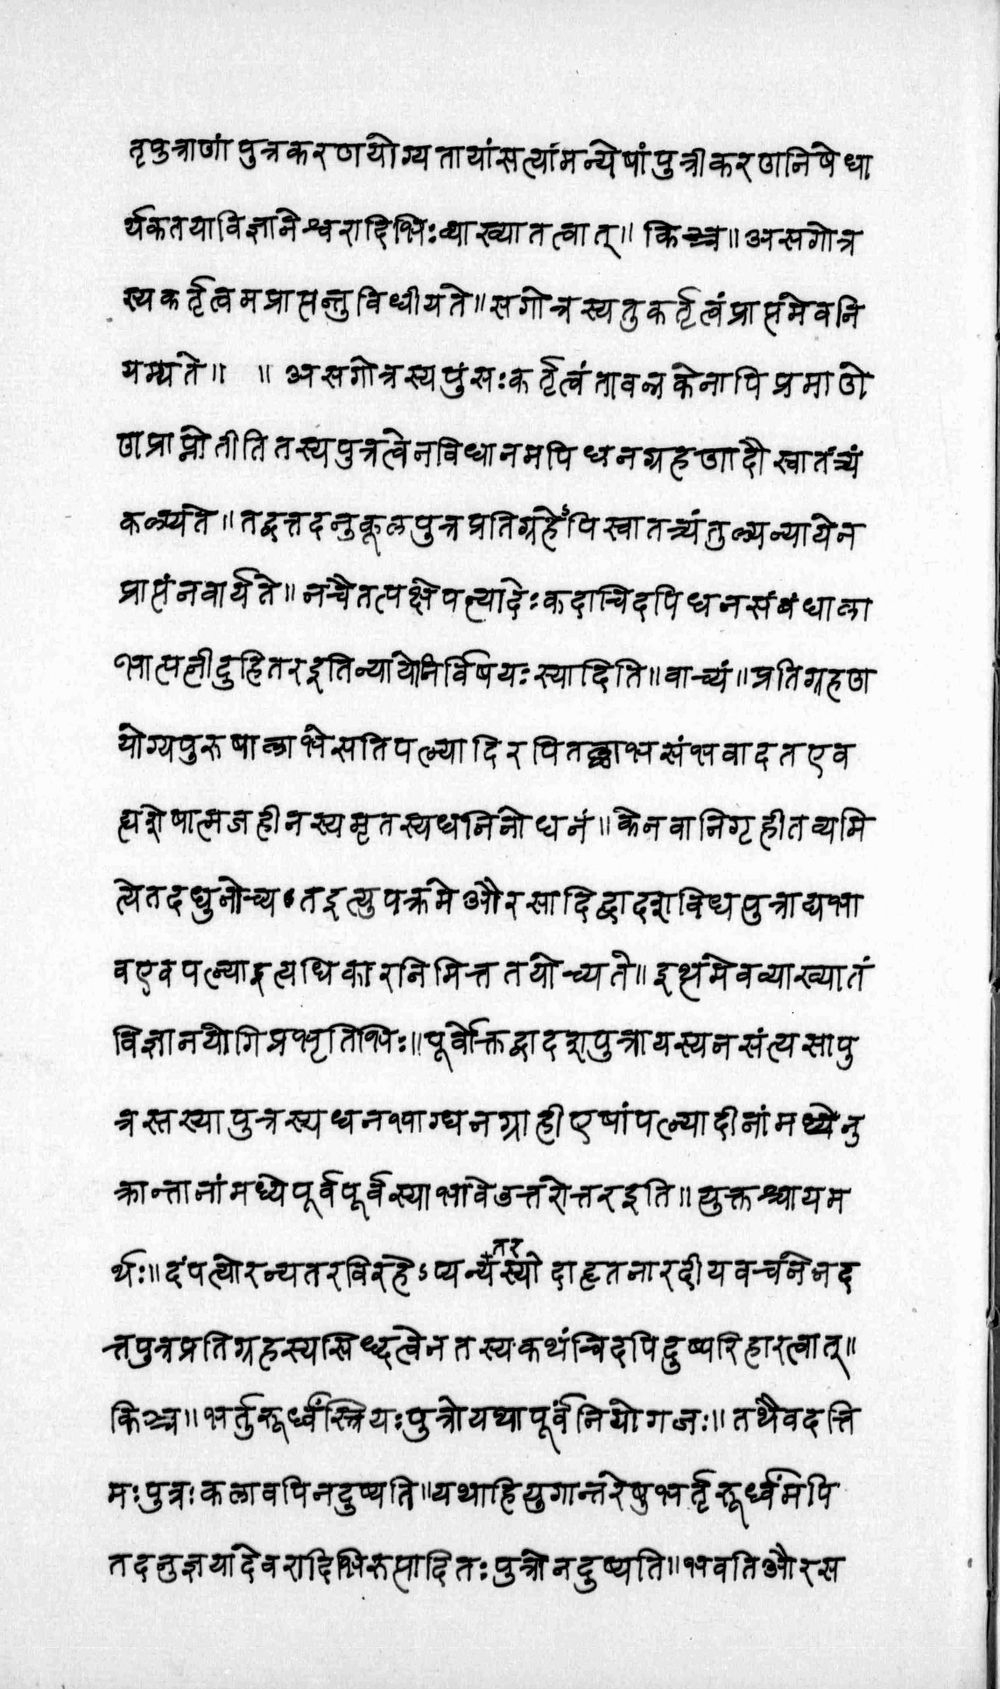 तृपुत्राणां पुत्रकरणयोग्यतायांसत्यांमन्येषांपुत्रीकरणनिषेधा
र्थकतयाविज्ञानेश्वरादिभिःव्याख्यातत्वात्॥ किञ्च॥ असगोत्र
स्यकर्तृत्वमप्राप्तन्तुविधीयते॥ सगोत्रस्यतुकर्तृत्वंप्राप्तंमेवनि
यम्यते॥ ॥ असगोत्रस्यपुंसःकर्तृत्वंतावन्नकेनापिप्रमाणे
णप्राप्नोतीतितस्यपुत्रत्वेनविधानमपिधनग्रहणादौस्वातंत्र्यं
कल्प्यंते॥ तद्वत्तदनुकूलपुत्रप्रतिग्रहेंपिस्वातत्र्यंतुल्यन्यायेन
प्राप्तंनवार्यते॥ नचैतत्पक्षेपत्न्यादेःकदाचिदपिधनसंबंधाला
भात्पत्नीदुहितरइतिन्यायोनिर्विषयःस्यादिति॥ वाच्यं॥ प्रतिग्रहण
योग्यपुरुषालाभेसतिपत्न्यादिरपितल्लाभसंभवादतएव
ह्यशेषात्मजहीनस्यमृतस्यधनिनोधनं॥ केनवानिगृहीतव्यमि
त्येतदधुनोच्यतइत्युपक्रमेऔरसादिद्वादशविधपुत्राद्यभा
वएवपत्न्याइत्यधिकारनिमित्ततयोच्यते॥ इत्थंमेवव्याख्यातं
विज्ञानयोगिप्रभृतिभिः॥ पूर्वोक्तद्वादशपुत्रायस्यनसंत्यसापु
त्रस्तस्यापुत्रस्यधनभाग्धनग्राहीएषांपत्न्यादीनांमध्येनु
क्रान्तानांमध्येपूर्वपूर्वस्याभावेउत्तरोत्तरइति॥ युक्तश्चायम
र्थः॥ दंपत्योरन्यतरविरहेऽप्यन्यैतरस्योदाहृतनारदीयवचनेनद
त्तपुत्रप्रतिग्रहस्यसिध्दत्वेनतस्यकथंचिदपिदुष्परिहारत्वात्॥
किञ्च॥ भर्तुरूर्ध्वंस्त्रियःपुत्रोयथापूर्वंनियोगजः॥ तथैवदत्ति
मःपुत्रःकलावपिनदुष्यति॥ यथाहियुगान्तरेषुभर्तृरूर्ध्वंमपि
तदनुज्ञयादेवरादिभिरुत्पादितःपुत्रोनदुष्यति॥ भवतिऔरस